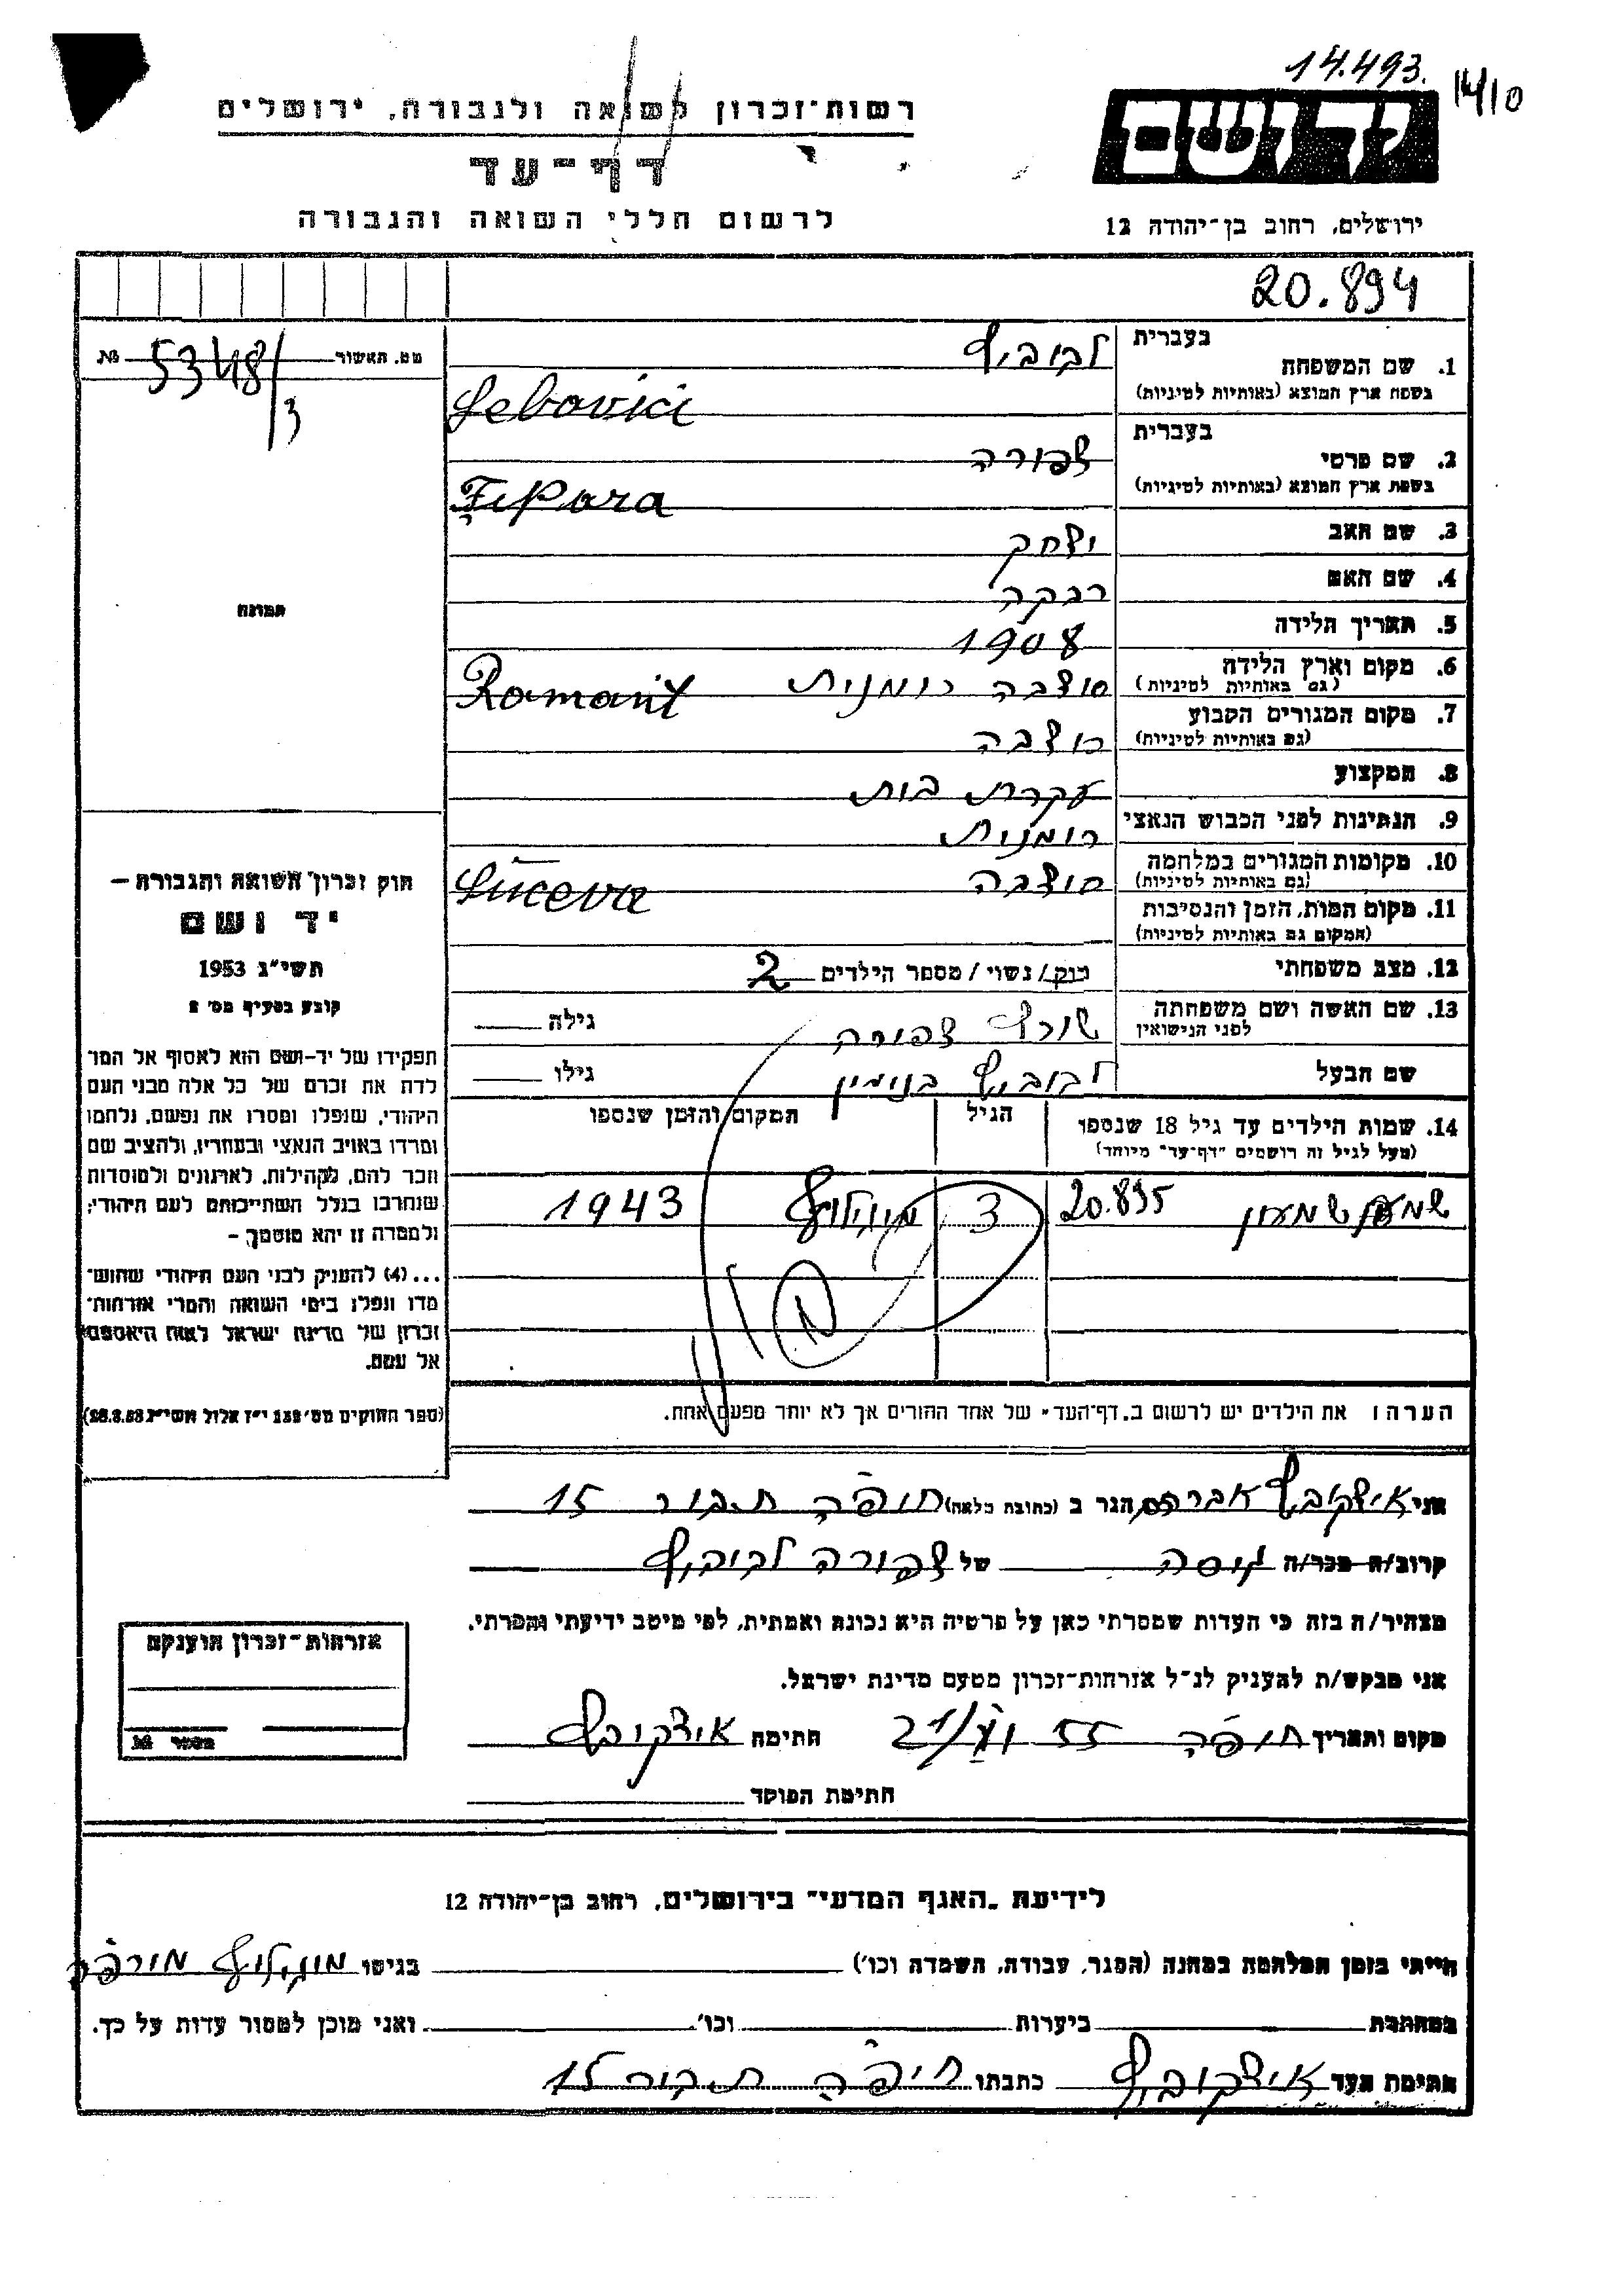 14.493.
14/10
יד ושם
רשות־זכרון לשואה ולגבורה, ירושלים
דף־עד
לרשום חללי השואה והגבורה
ירושלים, רחוב בן־יהודה 12
20.894
מס. תאשור 5348/3 №
בעברית
לבוביץ
1. שם המשפחה
בשפת ארץ המוצא (באותיות לטיניות)
Lebovici
בעברית
צפורה
2. שם פרטי
בשפת ארץ המוצא (באותיות לטיניות)
Țipora
3. שם האב יצחק
4. שם האם רבקה
5. תאריך הלידה 1908
6. מקום וארץ הלידה סוצבה רומנית
(גם באותיות לטיניות) Romanit
7. מקום המגורים הקבוע סוצבה
(גם באותיות לטיניות)
8. המקצוע עקרת בית
9. הנתינות לפני הכבוש הנאצי רומנית
10. מקומות המגורים במלחמה סוצבה
(גם באותיות לטיניות) Suceva
11. מקום המות, הזמן והנסיבות
(המקום גם באותיות לטיניות)
12. מצב משפחתי רוק/ נשוי / מספר הילדים 2
13. שם האשה ושם משפחתה
לפני הנישואין צפורה גילה
שם הבעל לבוביץ בנימין גילו
14. שמות הילדים עד גיל 18 שנספו
(מעל לגיל זה רושמים "דף־עד" מיוחד)
הגיל
המקום והזמן שנספו
שמעון 20.895 3 מוגילוב 1943
הערה: את הילדים יש לרשום ב„דף־העד" של אחד ההורים אך לא יותר מפעם אחת.
תמונה
חוק זכרון השואה והגבורה –
יד ושם
תשי"ג 1953
קובע בסעיף מס' 2
תפקידו של יד-ושם הוא לאסוף אל המו־
לדת את זכרם של כל אלה מבני העם
היהודי, שנפלו ומסרו את נפשם, נלחמו
ומרדו באויב הנאצי ובעוזריו, ולהציב שם
וזכר להם, לקהילות, לארגונים ולמוסדות
שנחרבו בגלל השתייכותם לעם היהודי;
ולמטרה זו יהא מוסמך, –
...(4) להעניק לבני העם היהודי שהוש־
מדו ונפלו בימי השואה והמרי אזרחות־
זכרון של מדינת ישראל לאות היאספם
אל עמם.
(ספר החוקים מס' 132 י"ז אלול תשי"ג 28.8.53)
אני איצקוביץ אברהם הגר ב (כתובת מלאה) חיפה תבור 15
קרוב/ה מכר/ה גיסה של צפורה לבוביץ
מצהיר/ה בזה כי העדות שמסרתי כאן על פרטיה היא נכונה ואמתית, לפי מיטב ידיעתי והכרתי.
אני מבקש/ת להעניק לנ"ל אזרחות־זכרון מטעם מדינת ישראל.
מקום ותאריך חיפה 55 חתימה איצקוביץ
חתימת הפוקד
אזרחות־זכרון הוענקה
מספר №
לידיעת „האגף המדעי" בירושלים, רחוב בן־יהודה 12
הייתי בזמן המלחמה במחנה (הסגר, עבודה, השמדה וכו') בגיטו מוגילוב מורפה
במחתרת ביערות וכו' ואני מוכן למסור עדות על כך.
חתימת העד איצקוביץ כתבתו חיפה תבור 15